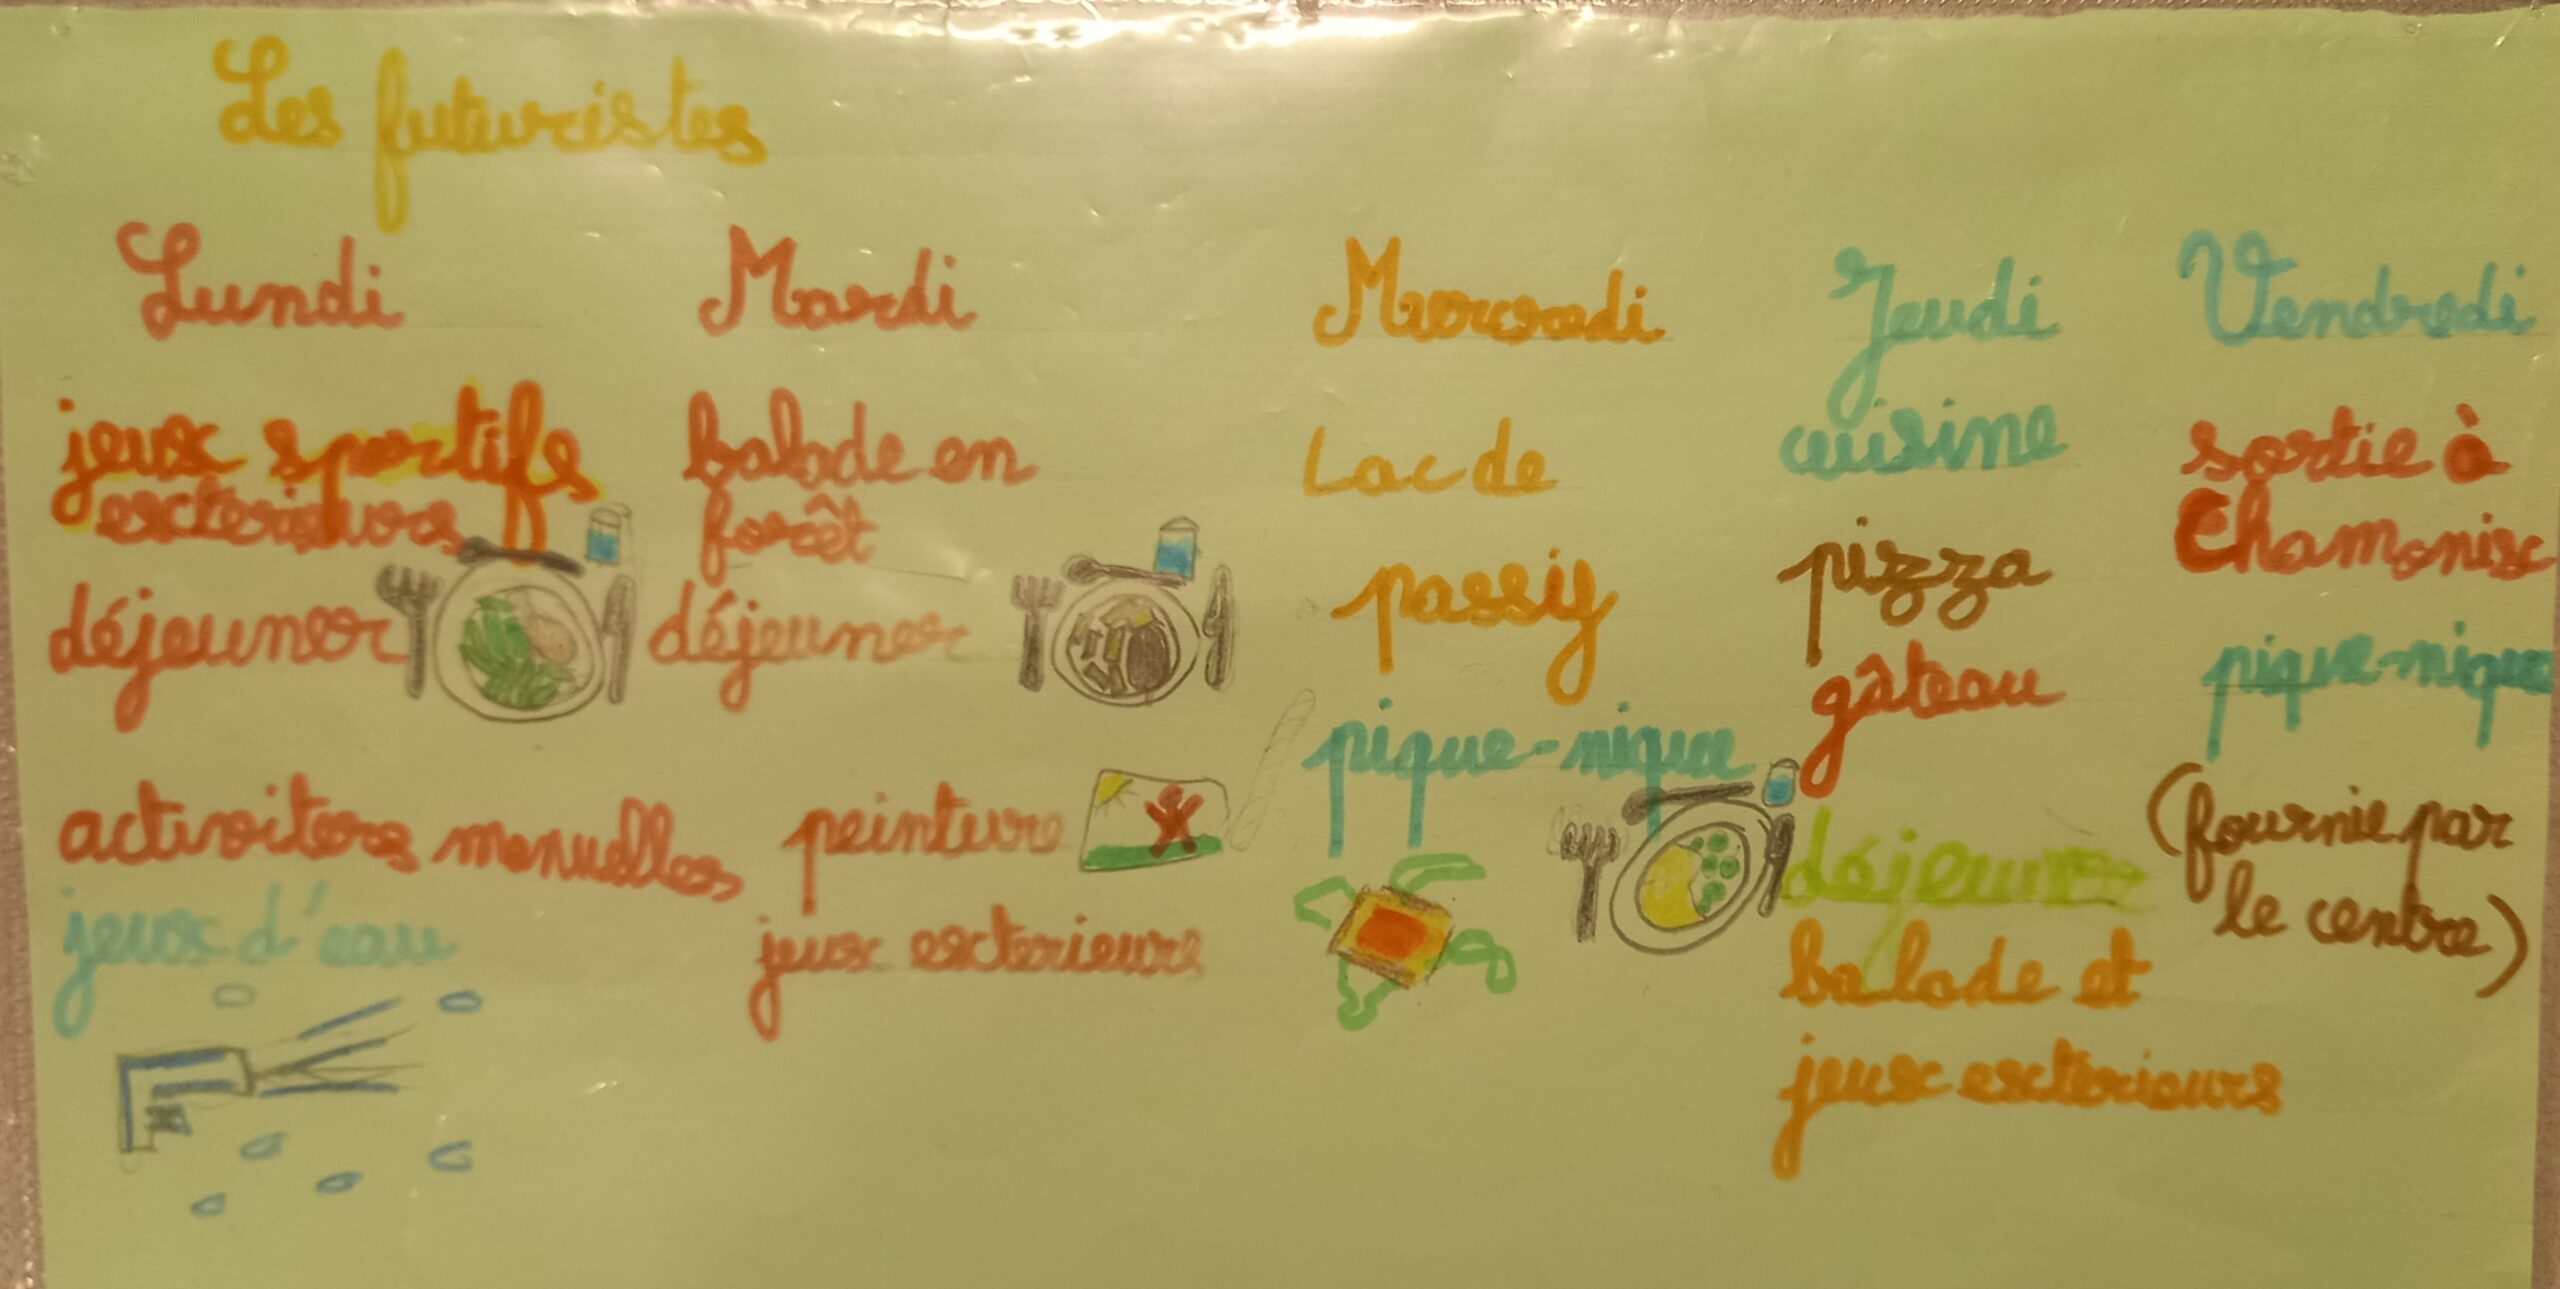 Les futuristes
Lundi
jeux sportifs
exterieurs
déjeuner
activiters manuelles
jeux d'eau
Mardi
balade en
forêt
déjeuner
peinture
jeux exterieurs
Mercredi
Lac de
passiy
pique-nique
Jeudi
cuisine
pizza
gâteau
déjeuner
balade et
jeux extérieurs
Vendredi
sortie à
Chamonix
pique-nique
(fournie par
le centre)